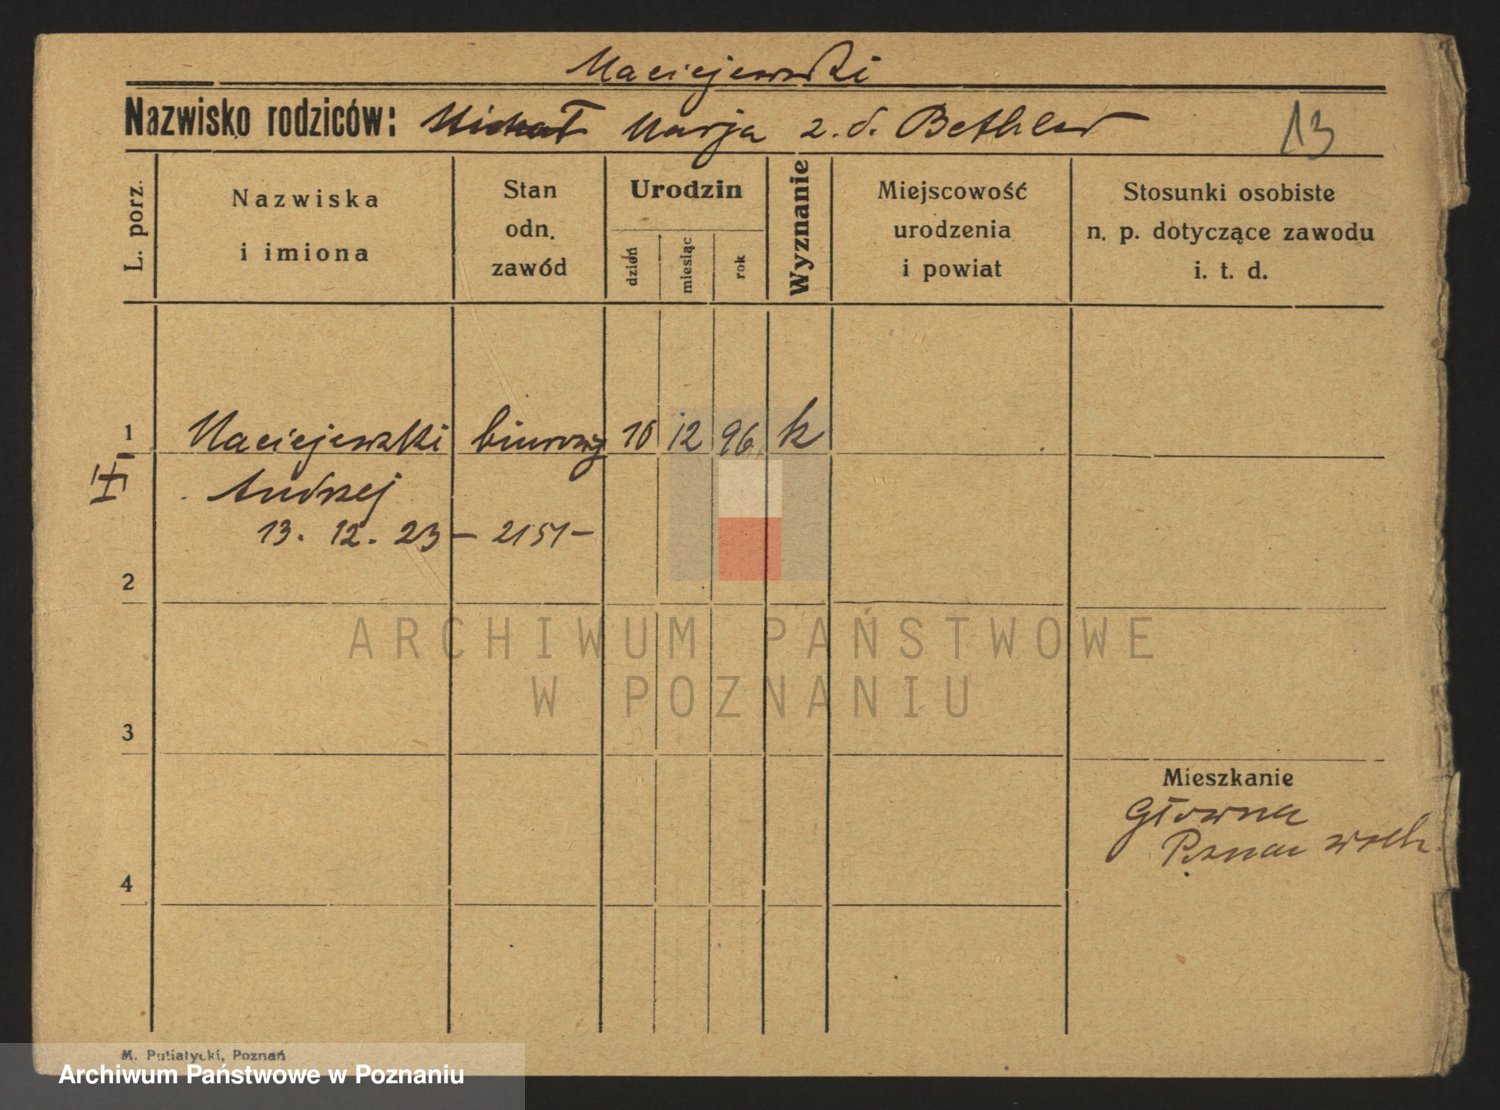 Maciejewski
Nazwisko rodziców: Michał Marja z. d. Bethler
13
L. porz.
Nazwiska
i imiona
Stan
odn.
zawód
Urodzin
dzień
miesiąc
rok
Wyznanie
Miejscowość
urodzenia
i powiat
Stosunki osobiste
n. p. dotyczące zawodu
i. t. d.
1 Maciejewski biurowy 10 12 96 k
Andrzej
13. 12. 23 – 2151 –
2
ARCHIWUM PAŃSTWOWE
W POZNANIU
3
Mieszkanie
Główna
4
M. Putiatycki, Poznań
Archiwum Państwowe w Poznaniu